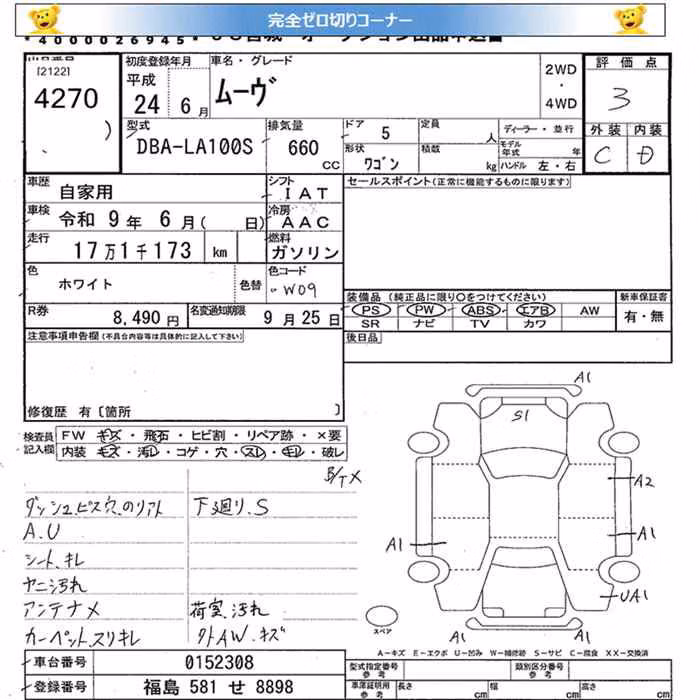 完全ゼロ切りコーナー
*4000026945*
[2122]
4270
初度登録年月
平成
24 6月
車名・グレード
ムーヴ
2WD
・
4WD
評価点
3
外装 内装
C D
型式
DBA-LA100S
排気量
660
CC
ドア
5
定員
人
ディーラー・並行
モデル年式
年
形状
ワゴン
積載
kg
ハンドル 左・右
車歴
自家用
シフト
IAT
セールスポイント(正常に機能するものに限ります)
車検
令和 9年 6月( 日)
冷房
AAC
走行
17万1千173 km
燃料
ガソリン
色
ホワイト
色替
色コード
W09
R券
8,490円
名変通知期限
9月25日
装備品 (純正品に限り○をつけてください)
PS PW ABS エアB AW
SR ナビ TV カワ
新車保証書
有・無
注意事項申告欄(不具合内容等は具体的に記入して下さい)
後日品
修復歴 有〔箇所 〕
検査員
記入欄
FW キズ・飛石・ヒビ割・リペア跡・×要
内装 キズ・汚レ・コゲ・穴・スレ・キレ・破レ
B/T×
ダッシュ.ビス穴.のりアト
下廻り.S
A.U
シート.キレ
ヤニ汚れ
アンテナ×
荷室.汚れ
カーペット.スリキレ
外AW.キズ
A1
S1
A2
A1
A1
UA1
A1
A1
スペア
A-キズ E-エクボ U-凹み W-補修跡 S-サビ C-腐食 XX-交換済
車台番号
0152308
登録番号
福島 581 せ 8898
型式指定番号
参考
類別区分番号
参考
車庫証明用
参考
長さ
cm
幅
cm
高さ
cm